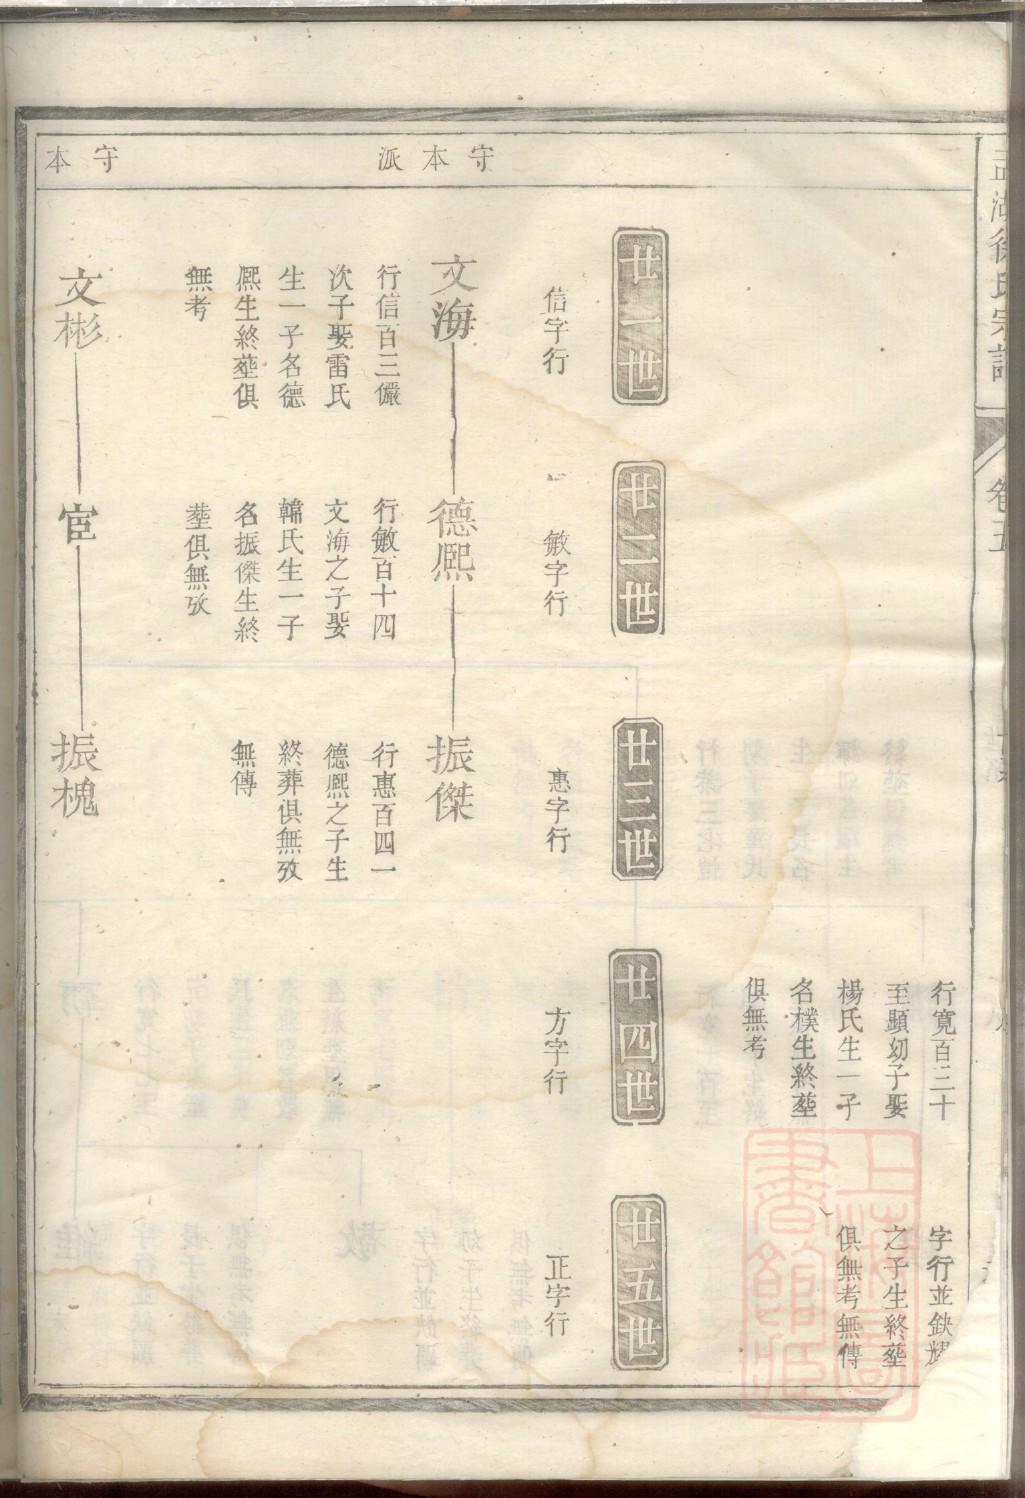 守本派
守本
湖徐氏宗譜
卷五
行寛百三十
至顯幼子娶
楊氏生一子
名樸生終塟
俱無考
字行並缺耀
之子生終塟
俱無考無傳
廿一世
廿二世
廿三世
廿四世
廿五世
信字行
敏字行
惠字行
方字行
正字行
文海
行信百三儼
次子娶雷氏
生一子名德
熈生終塟俱
無考
德熈
行敏百十四
文海之子娶
韓氏生一子
名振傑生終
塟俱無攷
振傑
行惠百四一
德熈之子生
終葬俱無攷
無傳
文彬
宦
振槐
上海圖
書館藏